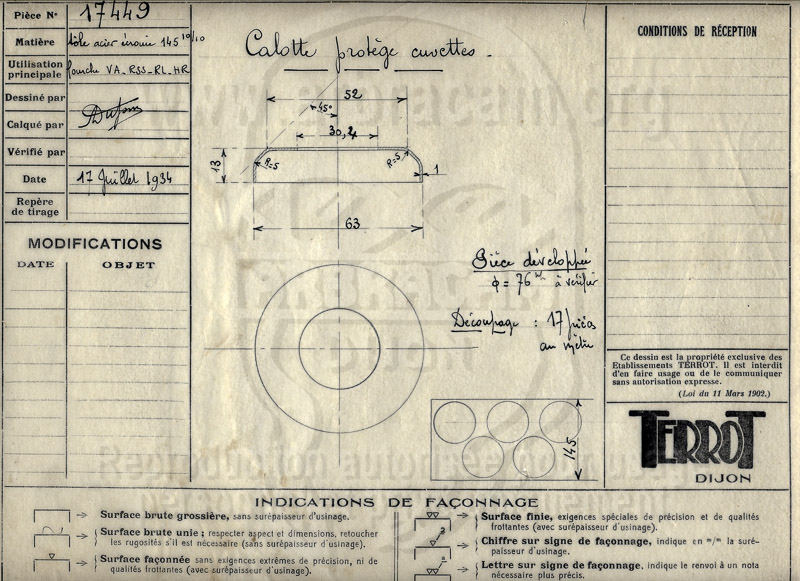 Pièce N° 17449
Matière tôle acier 145 10/10
Utilisation principale fourche VA_RSS_RL_HR
Dessiné par
Calqué par
Vérifié par
Date 17 Juillet 1934
Repère de tirage
MODIFICATIONS
DATE OBJET
Calotte protège cuvettes
52
45°
30,4
13
R=5
R=5
1
63
Pièce développée
ϕ = 76 à vérifier
Découpage : 17 pièces
au mètre
145
CONDITIONS DE RÉCEPTION
Ce dessin est la propriété exclusive des
Etablissements TERROT. Il est interdit
d'en faire usage ou de le communiquer
sans autorisation expresse.
(Loi du 11 Mars 1902.)
TERROT
DIJON
INDICATIONS DE FAÇONNAGE
Surface brute grossière, sans surépaisseur d'usinage.
Surface brute unie ; respecter aspect et dimensions, retoucher
les rugosités s'il est nécessaire (sans surépaisseur d'usinage).
Surface façonnée sans exigences extrêmes de précision, ni de
qualités frottantes (avec surépaisseur d'usinage).
Surface finie, exigences spéciales de précision et de qualités
frottantes (avec surépaisseur d'usinage).
Chiffre sur signe de façonnage, indique en m/m la suré-
paisseur d'usinage.
Lettre sur signe de façonnage, indique le renvoi à un nota
nécessaire plus précis.